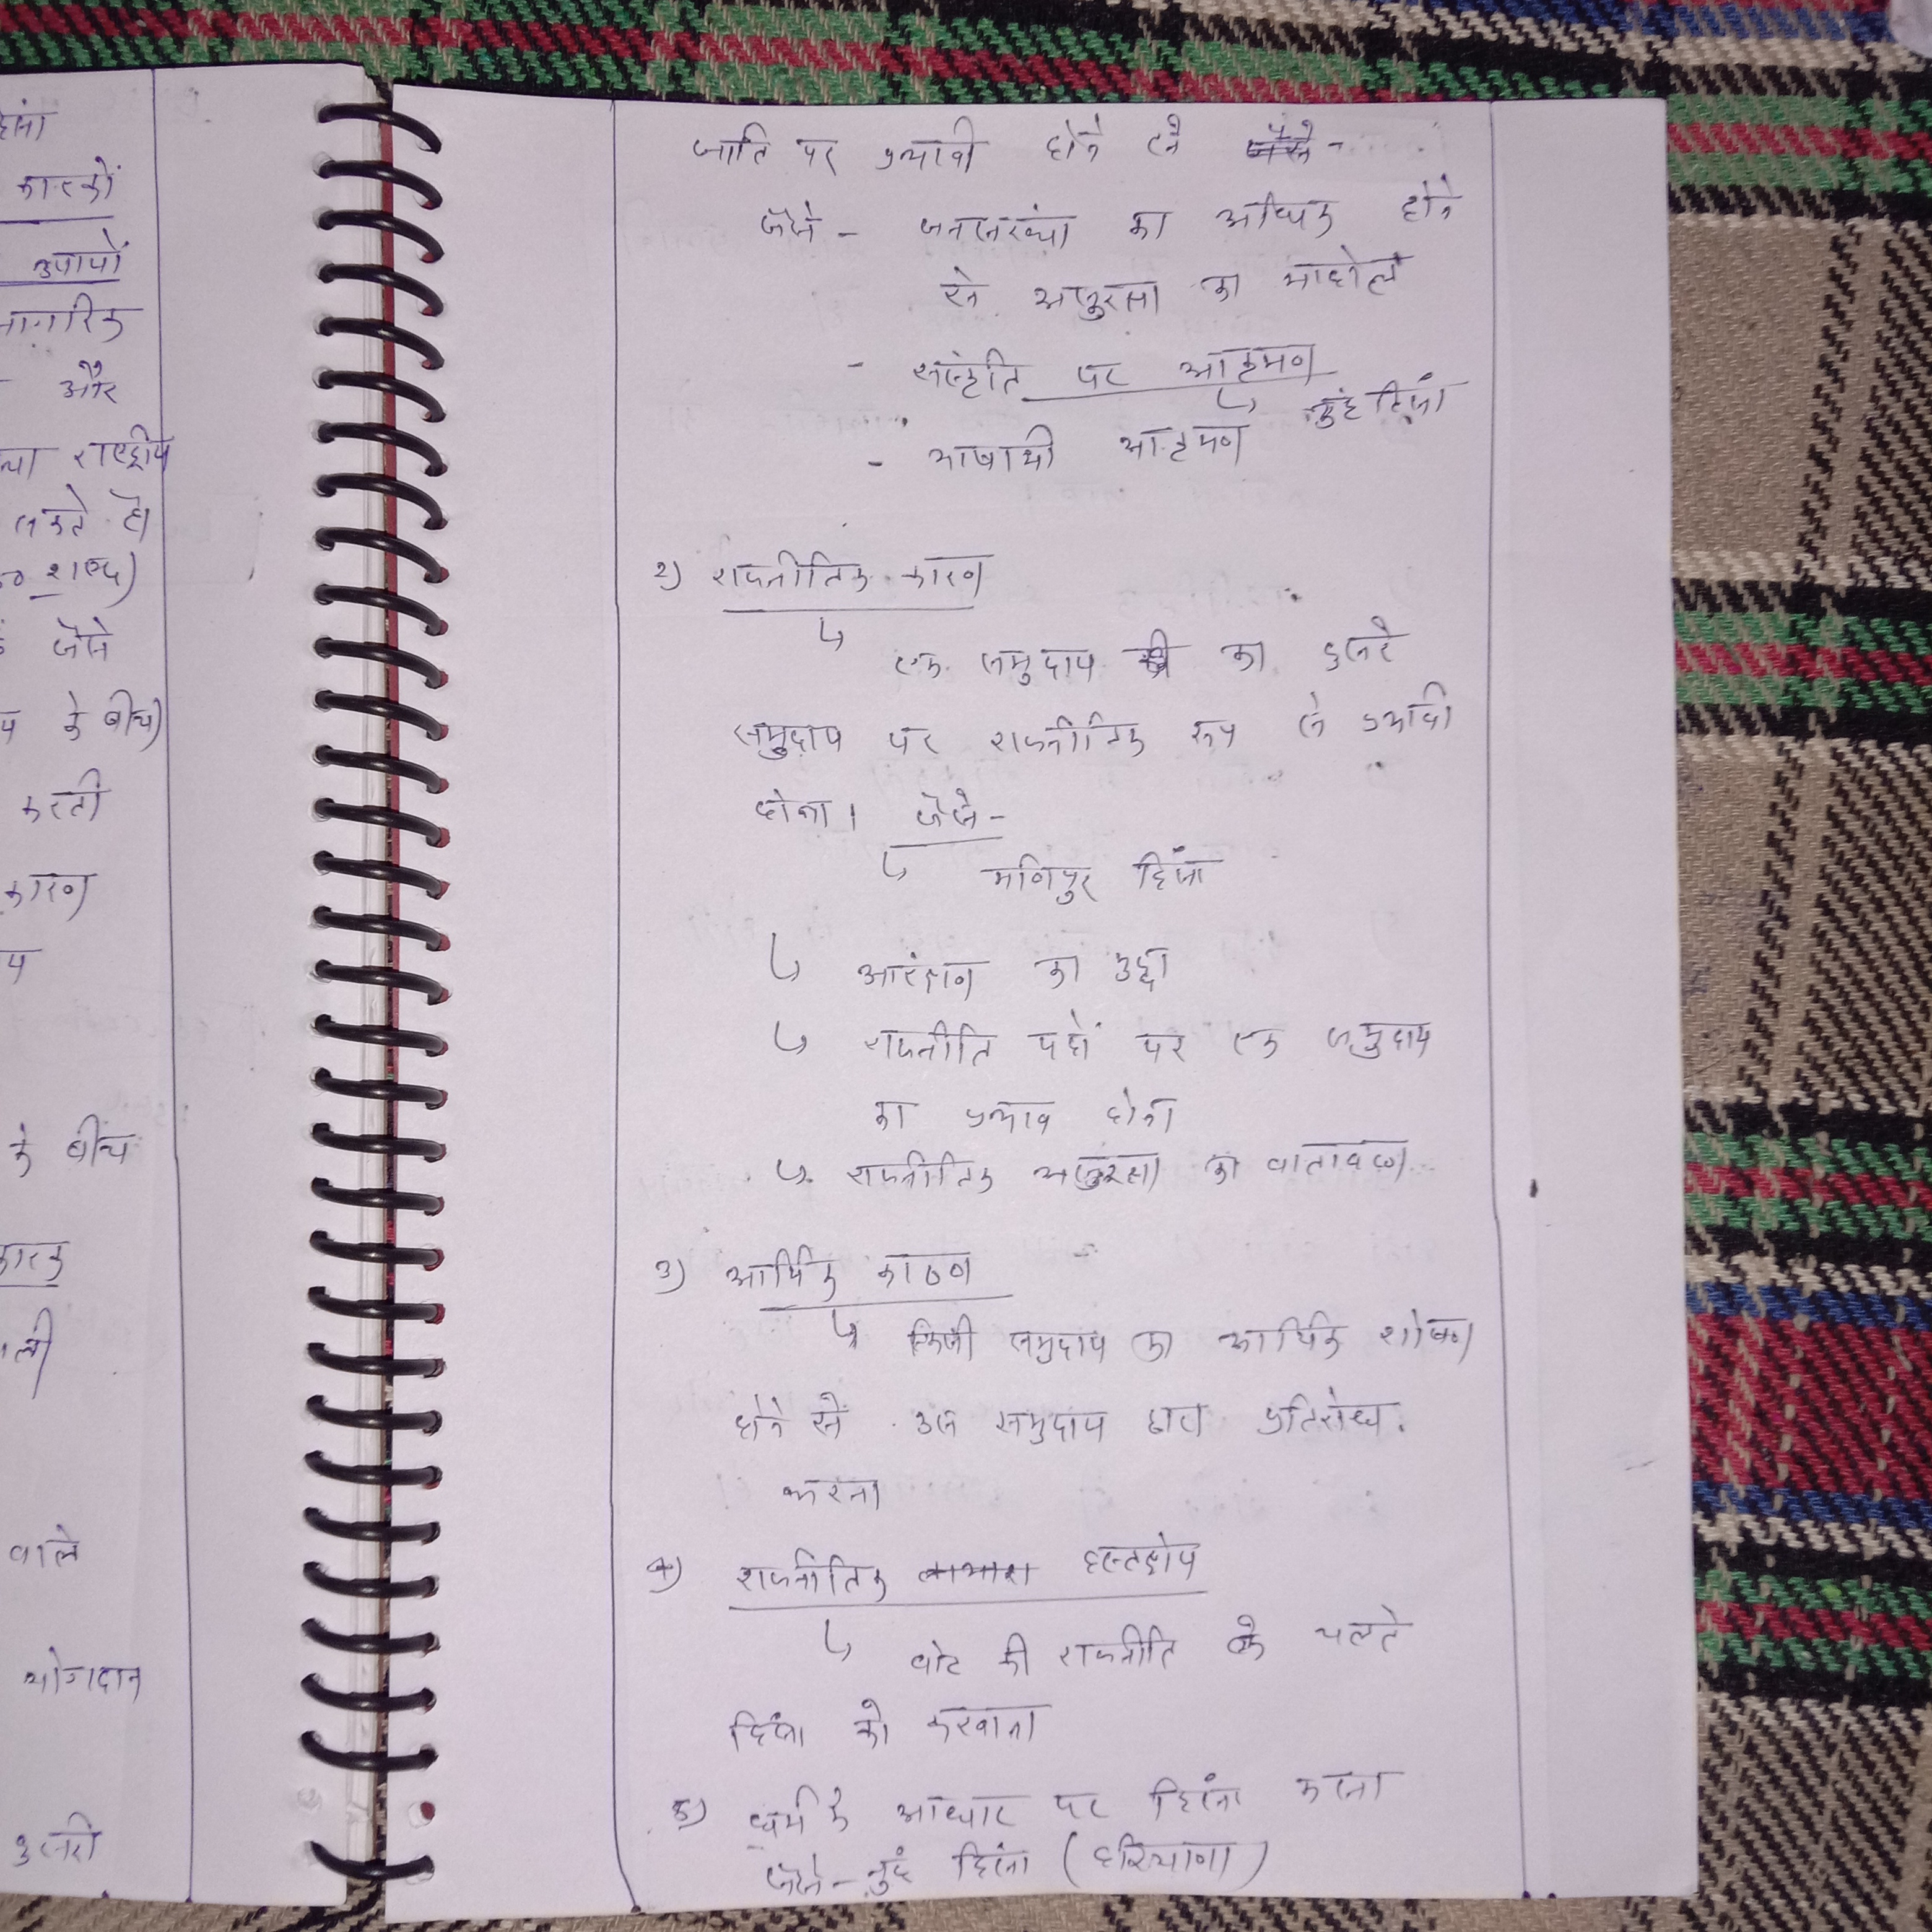 हिंसा
कारकों
उपायों
नागरिक
और
राष्ट्रीय
सकते है।
शब्द)
जैसे
के बीच)
करती
कारण
य
के बीच
कारक
वाले
योगदान
दुसरी
जाति पर प्रभावी होने से
जैसे - जनसंख्या का अधिक होने
से असुरक्षा का माहोल
- संस्कृति पर आक्रमण
↳ नुंह हिंसा
- भाषायी आक्रमण
2) राजनीतिक कारण
↳ एक समुदाय का दुसरे
समुदाय पर राजनीतिक रूप से प्रभावी
होना। जैसे -
↳ मणिपुर हिंसा
↳ आरंक्षण का मुद्दा
↳ राजनीति पदों पर एक समुदाय
का प्रभाव होना
↳ राजनीतिक असुरक्षा का वातावरण
3) आर्थिक कारण
↳ किसी समुदाय का आर्थिक शोषण
होने से उस समुदाय द्वारा प्रतिरोध
करना
4) राजनीतिक हस्तक्षेप
↳ वोट की राजनीति के चलते
हिंसा को करवाना
5) धर्म के आधार पर हिंसा करना
जैसे - नुंह हिंसा (हरियाणा)